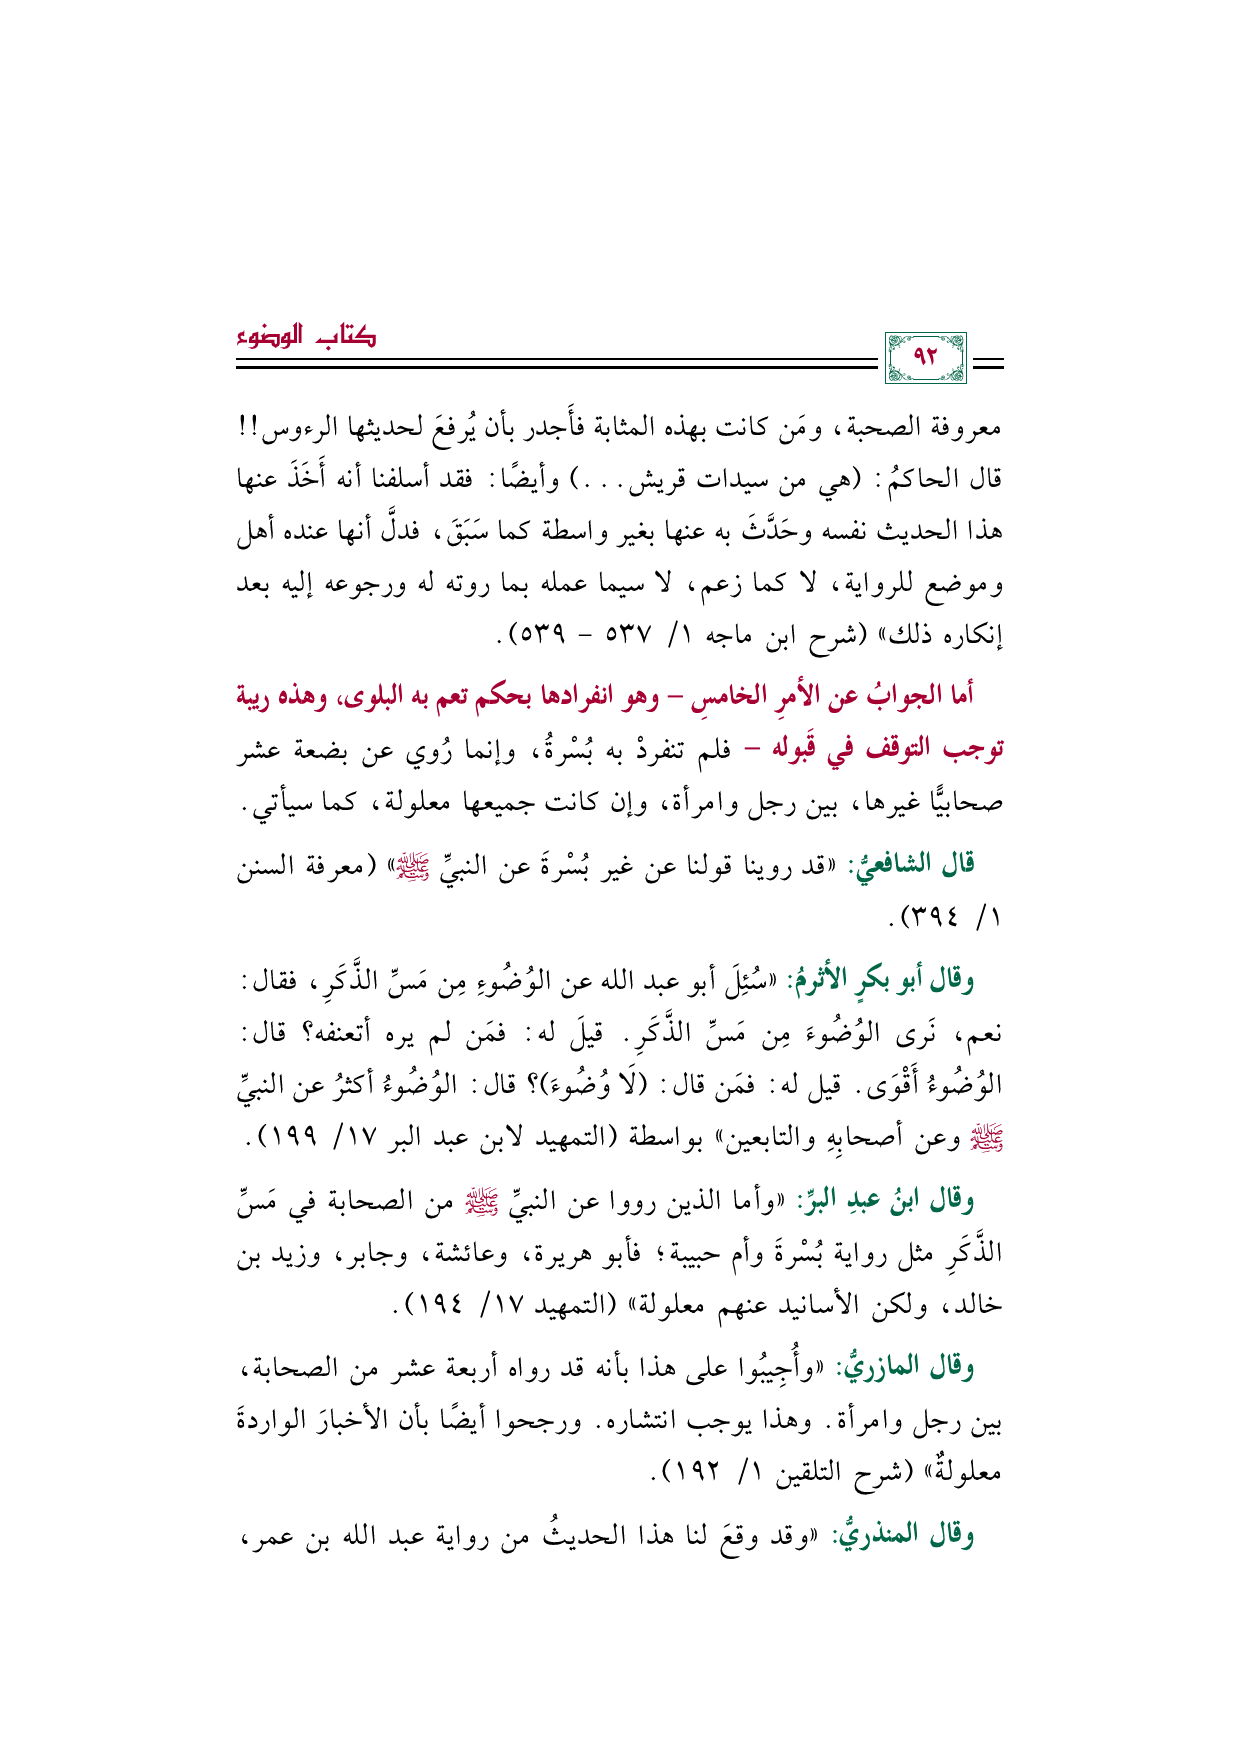 كتاب الوضوء
٩٢
معروفة الصحبة، ومَن كانت بهذه المثابة فأَجدر بأن يُرفعَ لحديثها الرءوس!!
قال الحاكمُ: (هي من سيدات قريش...) وأيضًا: فقد أسلفنا أنه أَخَذَ عنها
هذا الحديث نفسه وحَدَّثَ به عنها بغير واسطة كما سَبَقَ، فدلَّ أنها عنده أهل
وموضع للرواية، لا كما زعم، لا سيما عمله بما روته له ورجوعه إليه بعد
إنكاره ذلك» (شرح ابن ماجه ١/ ٥٣٧ – ٥٣٩).
أما الجوابُ عن الأمرِ الخامسِ – وهو انفرادها بحكم تعم به البلوى، وهذه ريبة
توجب التوقف في قَبوله – فلم تنفردْ به بُسْرةُ، وإنما رُوي عن بضعة عشر
صحابيًّا غيرها، بين رجل وامرأة، وإن كانت جميعها معلولة، كما سيأتي.
قال الشافعيُّ: «قد روينا قولنا عن غير بُسْرةَ عن النبيِّ ﷺ» (معرفة السنن
١/ ٣٩٤).
وقال أبو بكرٍ الأثرمُ: «سُئِلَ أبو عبد الله عن الوُضُوءِ مِن مَسِّ الذَّكَرِ، فقال:
نعم، نَرى الوُضُوءَ مِن مَسِّ الذَّكَرِ. قيلَ له: فمَن لم يره أتعنفه؟ قال:
الوُضُوءُ أَقْوَى. قيل له: فمَن قال: (لَا وُضُوءَ)؟ قال: الوُضُوءُ أكثرُ عن النبيِّ
ﷺ وعن أصحابِهِ والتابعين» بواسطة (التمهيد لابن عبد البر ١٧/ ١٩٩).
وقال ابنُ عبدِ البرِّ: «وأما الذين رووا عن النبيِّ ﷺ من الصحابة في مَسِّ
الذَّكَرِ مثل رواية بُسْرةَ وأم حبيبة؛ فأبو هريرة، وعائشة، وجابر، وزيد بن
خالد، ولكن الأسانيد عنهم معلولة» (التمهيد ١٧/ ١٩٤).
وقال المازريُّ: «وأُجِيبُوا على هذا بأنه قد رواه أربعة عشر من الصحابة،
بين رجل وامرأة. وهذا يوجب انتشاره. ورجحوا أيضًا بأن الأخبارَ الواردةَ
معلولةٌ» (شرح التلقين ١/ ١٩٢).
وقال المنذريُّ: «وقد وقعَ لنا هذا الحديثُ من رواية عبد الله بن عمر،